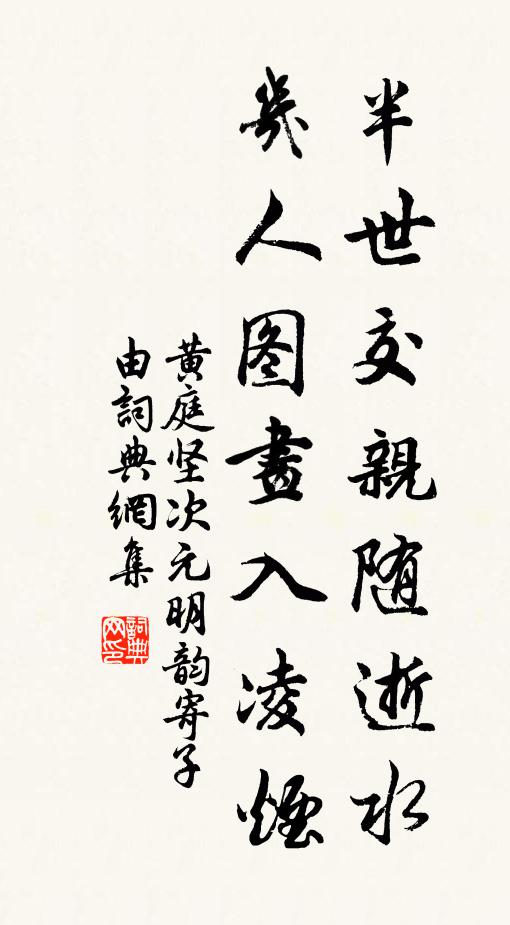 半世交親随逝水
幾人图畫入凌煙
黄庭坚次元明韵寄子
由詞典網集
詞典网印